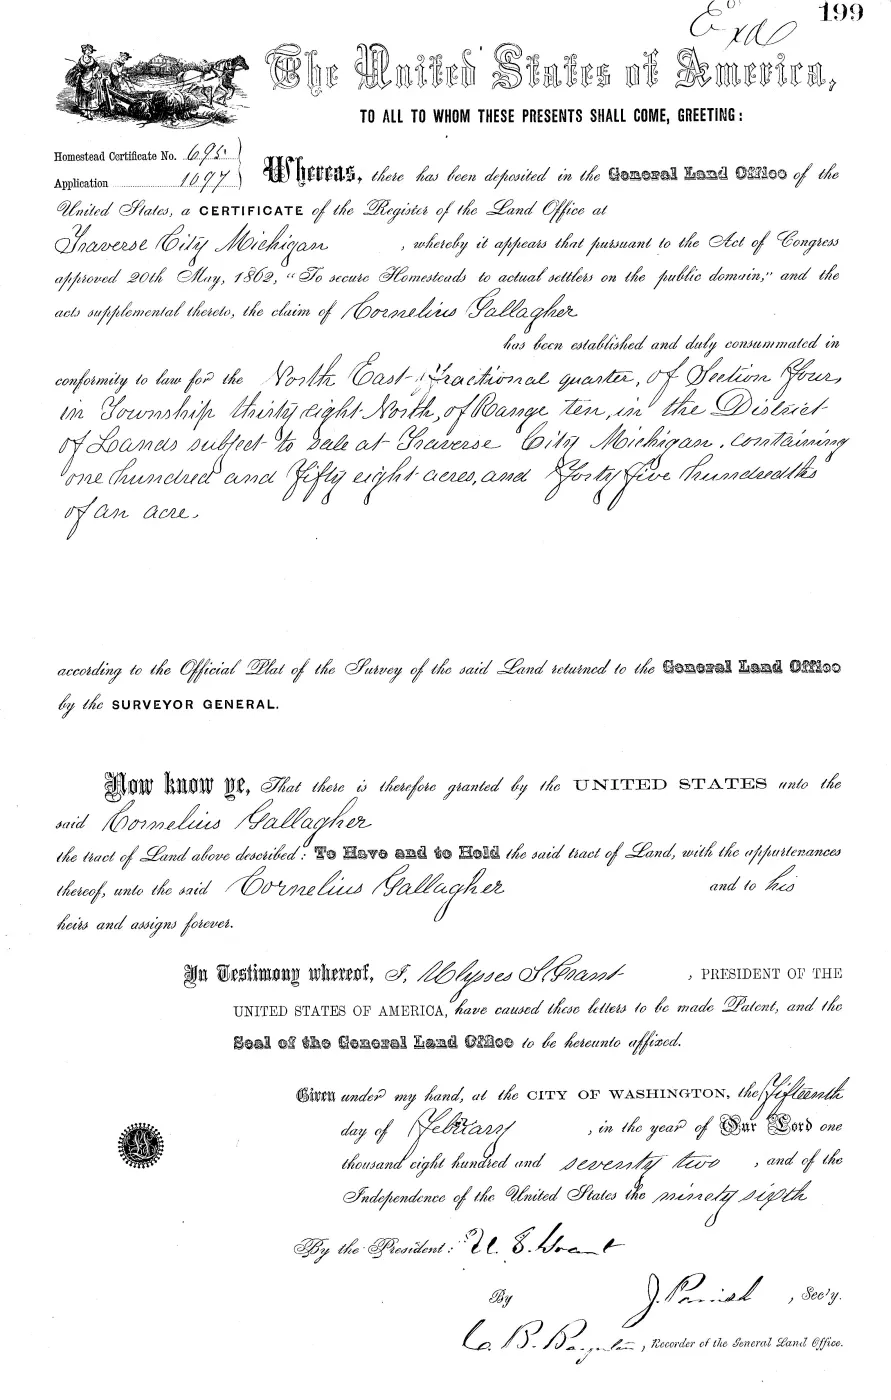 199
Exd
The United States of America,
TO ALL TO WHOM THESE PRESENTS SHALL COME, GREETING:
Homestead Certificate No. 695
Application 1697
Whereas, there has been deposited in the General Land Office of the
United States, a CERTIFICATE of the Register of the Land Office at
Traverse City Michigan , whereby it appears that pursuant to the Act of Congress
approved 20th May, 1862, "To secure Homesteads to actual settlers on the public domain," and the
acts supplemental thereto, the claim of Cornelius Gallagher
has been established and duly consummated in
conformity to law for the North East fractional quarter, of Section Four,
in Township thirty eight North, of Range ten, in the District
of Lands subject to sale at Traverse City Michigan, containing
one hundred and Fifty eight acres, and Forty five hundredths
of an acre.
according to the Official Plat of the Survey of the said Land returned to the General Land Office
by the SURVEYOR GENERAL.
Now know ye, That there is therefore granted by the UNITED STATES unto the
said Cornelius Gallagher
the tract of Land above described: To Have and to Hold the said tract of Land, with the appurtenances
thereof, unto the said Cornelius Gallagher and to his
heirs and assigns forever.
In Testimony whereof, I, Ulysses S. Grant , PRESIDENT OF THE
UNITED STATES OF AMERICA, have caused these letters to be made Patent, and the
Seal of the General Land Office to be hereunto affixed.
Given under my hand, at the CITY OF WASHINGTON, the Fifteenth
day of February , in the year of Our Lord one
thousand eight hundred and seventy two , and of the
Independence of the United States the ninety sixth
By the President: U. S. Grant
By J. Parrish , Sec'y.
C. B. , Recorder of the General Land Office.